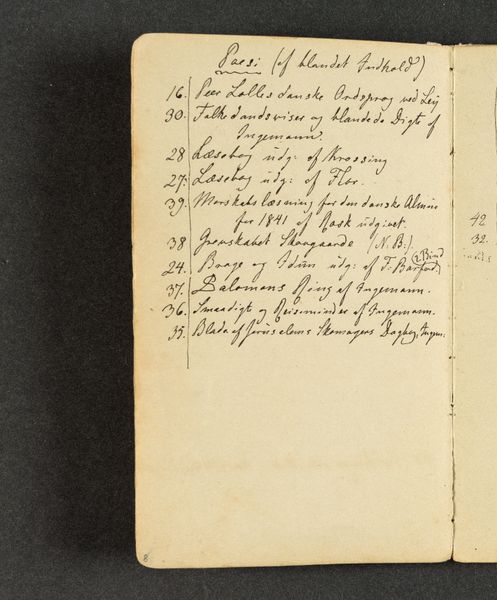 Poesi (af blandet Indhold)
16. Peer Lolles danske Ordsprog ved
30. Folkedandsviser og blandede Digte af
Ingemann.
28 Læsebog udg: af Krossing
27. Læsebog udg: af Flor.
39. Morskabslæsning for den danske Almue
for 1841 af Rask udgivet.
38 Grevskabet Skovgaarde (N.B:)
24. Brage og Idun udg: af F: Barfod (2 Bind
37. Salomons Ring af Ingemann.
36. Smaadigte og Reiseminder af Ingemann.
35. Blade af Jerusalems Skomagers Dagbog, Ingem.
42
32.
8